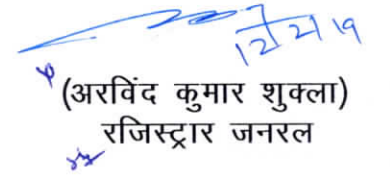 12/2/19
(अरविंद कुमार शुक्ला)
रजिस्ट्रार जनरल